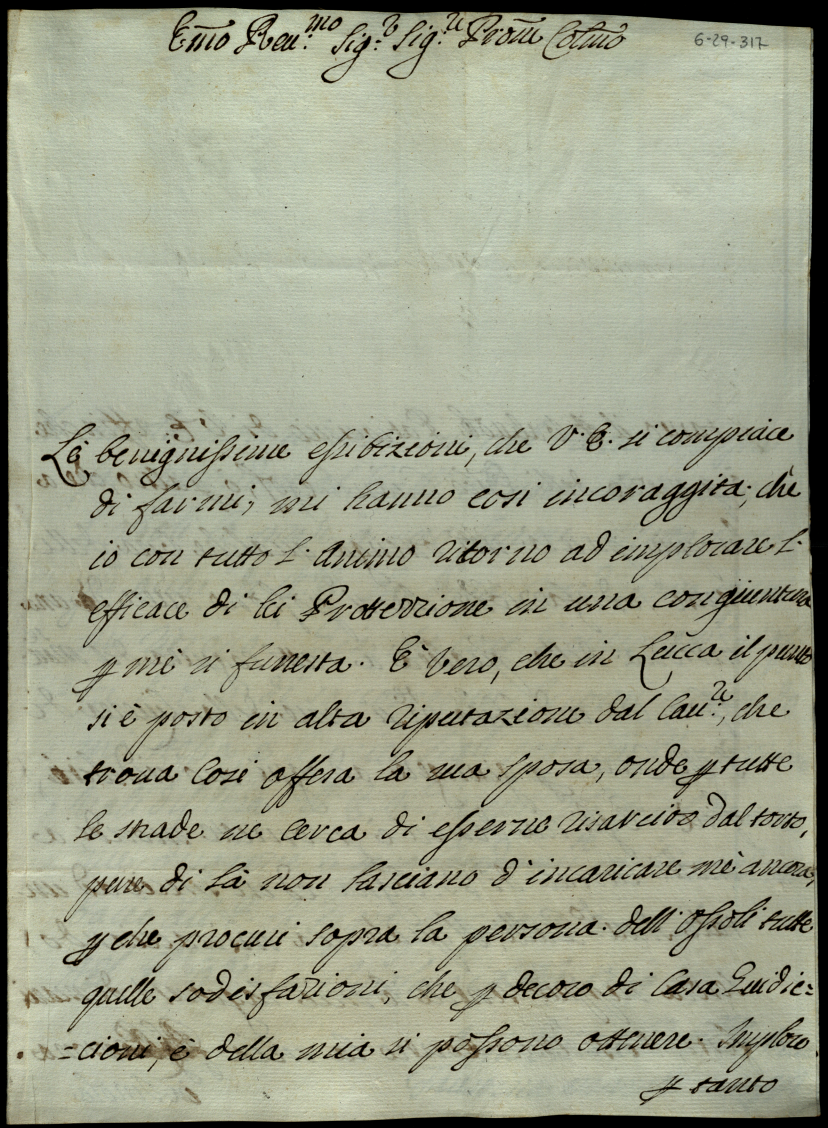 Em̃o Reu.mo Sig.r Sig.re Prom̃e Colm̃o
6-29-317
Le benignissime essibizioni, che V. E. si compiace
di farmi, mi hanno cosi incoraggita, che
io con tutto l' animo ritorno ad implorare l'
efficace di lei Protettione in una congiuntura
p mè si funesta. È vero, che in Lucca il punto
si è posto in alta riputazione dal Cau.re, che
troua cosi offesa la sua sposa, onde p tutte
le strade ne cerca di esserne risarcito dal torto,
pure di là non lasciano d' incaricare mè ancora,
p che procuri sopra la persona dell' Ossoli tutte
quelle sodisfazioni, che p decoro di Casa Guidic=
=cioni, è della mia si possono ottenere. Imploro
p tanto